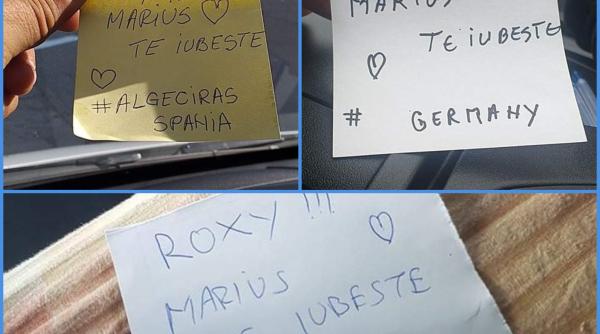 MARIUS ♡
TE IUBESTE
♡
#ALGECIRAS
SPANIA
MARIUS
TE IUBESTE
♡
# GERMANY
ROXY !!!
♡
MARIUS
IUBESTE